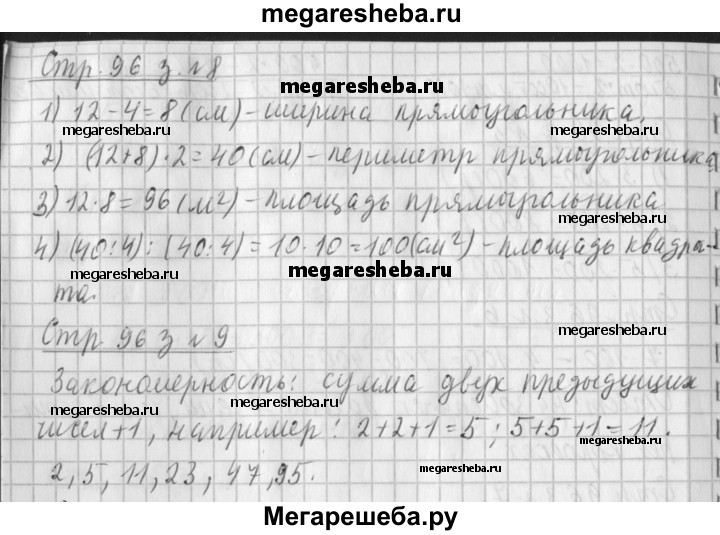 megaresheba.ru
Стр. 96 з. №8
megaresheba.ru
1) 12-4=8 (см) - ширина прямоугольника,
megaresheba.ru
megaresheba.ru
2) (12+8)·2=40 (см) - периметр прямоугольника,
3) 12·8=96 (м²) - площадь прямоугольника
megaresheba.ru
4) (40:4):(40:4)=10·10=100(см²) - площадь квадра-
megaresheba.ru
megaresheba.ru
та.
Стр. 96 з. №9
megaresheba.ru
Закономерность: сумма двух предыдущих
megaresheba.ru
megaresheba.ru
чисел+1, например: 2+2+1=5; 5+5+1=11.
megaresheba.ru
2, 5, 11, 23, 47, 95.
megaresheba.ru
Мегарешеба.ру